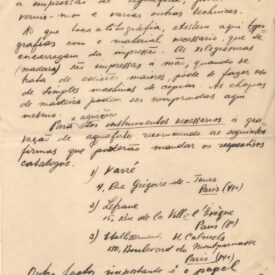 a empostas de aquafina,
verniz-mou e varias outras technicas.
No que toca a litografia, existem aqui lyto-
grafias com o material necessario, que se
encarregam da impressão. As xilogravuras
(madeira) são impressas a mão, quando se
trata de edições maiores, pode-se forçar uso
de simples machinas de copiar. As chapas
de madeira podem ser compradas aqui
mesmo.
Para dos instrumentos necessarios a gra-
vação de aquaforte recommendo as seguintes
firmas que poderão mandar os respectivos
catalogos.
1) Varré
4, Rue Grégoire-de-Tours
Paris (VIe)
2) Lefranc
15, Rue de la Ville-l'Evêque
Paris (8e)
3) Etablissement M. Cabriols
150, Boulevard du Montparnasse
Paris (XIVe)
Outro factor importante é o papel